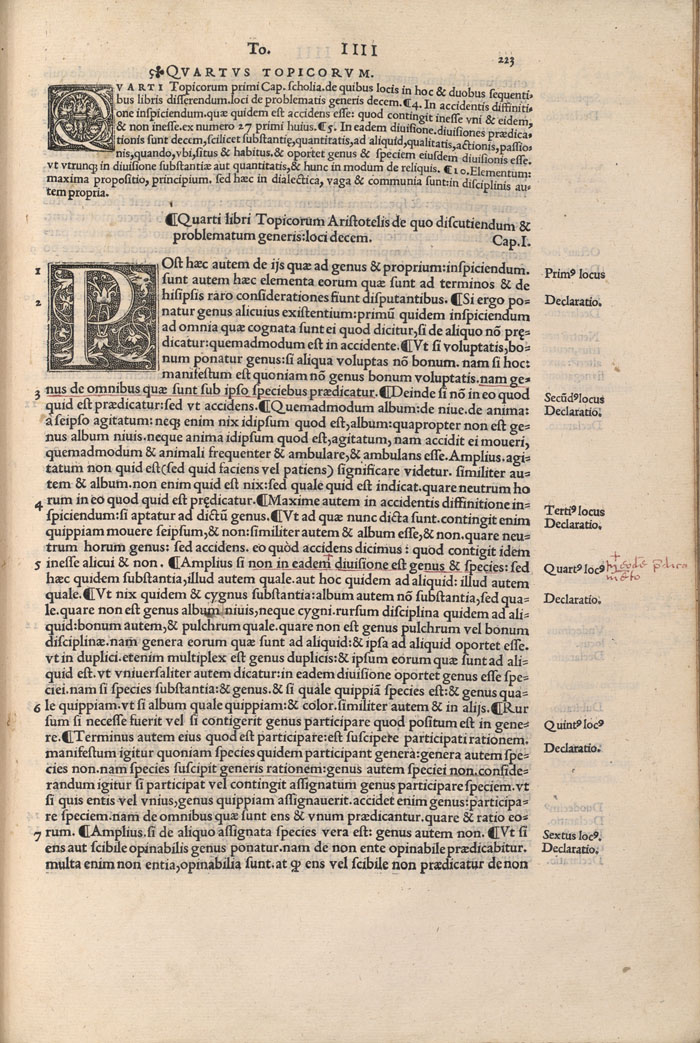 To. IIII
223
QVARTVS TOPICORVM.
QVARTI Topicorum primi Cap. scholia. de quibus locis in hoc & duobus sequenti-
bus libris disserendum. loci de problematis generis decem. ¶4. In accidentis diffiniti-
one inspiciendum. quæ quidem est accidens esse: quod contingit inesse vni & eidem,
& non inesse. ex numero 27 primi huius. ¶5. In eadem diuisione. diuisiones prædica-
tionis sunt decem, scilicet substantię, quantitatis, ad aliquid, qualitatis, actionis, passio-
nis, quando, vbi, situs & habitus. & oportet genus & speciem eiusdem diuisionis esse.
vt vtrunq; in diuisione substantiæ aut quantitatis, & hunc in modum de reliquis. ¶10. Elementum:
maxima propositio, principium. sed hæc in dialectica, vaga & communia sunt: in disciplinis au-
tem propria.
¶Quarti libri Topicorum Aristotelis de quo discutiendum &
problematum generis: loci decem. Cap. I.
1 POst hæc autem de ijs quæ ad genus & proprium: inspiciendum.
Primꝰ locus
sunt autem hæc elementa eorum quæ sunt ad terminos & de
2 hisipsis raro considerationes fiunt disputantibus. ¶Si ergo po-
Declaratio.
natur genus alicuius existentium: primū quidem inspiciendum
ad omnia quæ cognata sunt ei quod dicitur, si de aliquo nō prę-
dicatur: quemadmodum est in accidente. ¶Vt si voluptatis, bo-
num ponatur genus: si aliqua voluptas nō bonum. nam si hoc:
manifestum est quoniam nō genus bonum voluptatis. nam ge-
3 nus de omnibus quæ sunt sub ipso speciebus prædicatur. ¶Deinde si nō in eo quod
Secūdꝰ locus
quid est prædicatur: sed vt accidens. ¶Quemadmodum album: de niue. de anima:
Declaratio.
à seipso agitatum: neq; enim nix idipsum quod est, album: quapropter non est ge-
nus album niuis. neque anima idipsum quod est, agitatum, nam accidit ei moueri,
quemadmodum & animali frequenter & ambulare, & ambulans esse. Amplius. agi-
tatum non quid est (sed quid faciens vel patiens) significare videtur. similiter au-
tem & album. non enim quid est nix: sed quale quid est indicat. quare neutrum ho
4 rum in eo quod quid est prędicatur. ¶Maxime autem in accidentis diffinitione in-
Tertiꝰ locus
spiciendum: si aptatur ad dictū genus. ¶Vt ad quæ nunc dicta sunt. contingit enim
Declaratio.
quippiam mouere seipsum, & non: similiter autem & album esse, & non. quare neu-
trum horum genus: sed accidens. eo quòd accidens dicimus: quod contigit idem
5 inesse alicui & non. ¶Amplius si non in eadem diuisione est genus & species: sed
Quartꝰ locꝰ
hæc quidem substantia, illud autem quale. aut hoc quidem ad aliquid: illud autem
quale. ¶Vt nix quidem & cygnus substantia: album autem nō substantia, sed qua-
Declaratio.
le. quare non est genus album niuis, neque cygni. rursum disciplina quidem ad ali-
quid: bonum autem, & pulchrum quale. quare non est genus pulchrum vel bonum
disciplinæ. nam genera eorum quæ sunt ad aliquid: & ipsa ad aliquid oportet esse.
vt in duplici. etenim multiplex est genus duplicis: & ipsum eorum quæ sunt ad ali-
quid est. vt vniuersaliter autem dicatur: in eadem diuisione oportet genus esse spe-
ciei. nam si species substantia: & genus. & si quale quippiā species est: & genus qua-
6 le quippiam. vt si album quale quippiam: & color. similiter autem & in alijs. ¶Rur
sum si necesse fuerit vel si contigerit genus participare quod positum est in gene-
Quintꝰ locꝰ
re. ¶Terminus autem eius quod est participare: est suscipere participati rationem.
Declaratio.
manifestum igitur quoniam species quidem participant genera: genera autem spe-
cies non. nam species suscipit generis rationem: genus autem speciei non. conside-
randum igitur si participat vel contingit assignatum genus participare speciem. vt
si quis entis vel vnius, genus quippiam assignauerit. accidet enim genus: participa-
re speciem. nam de omnibus quæ sunt ens & vnum prædicantur. quare & ratio eo-
7 rum. ¶Amplius. si de aliquo assignata species vera est: genus autem non. ¶Vt si
Sextus locꝰ.
ens aut scibile opinabilis genus ponatur. nam de non ente opinabile prædicabitur.
Declaratio.
multa enim non entia, opinabilia sunt. at ꝙ ens vel scibile non prædicatur de non